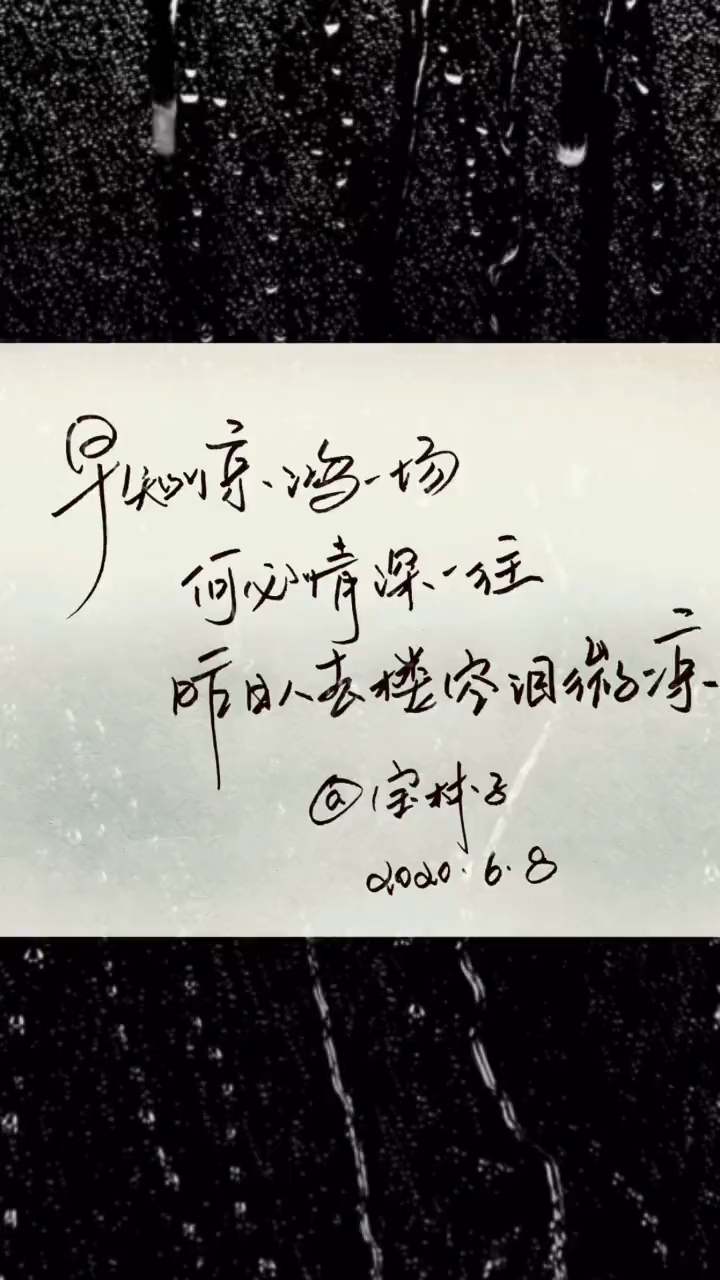 早知惊鸿一场
何必情深一往
昨日人去楼空泪微凉
@宝林子
2020.6.8